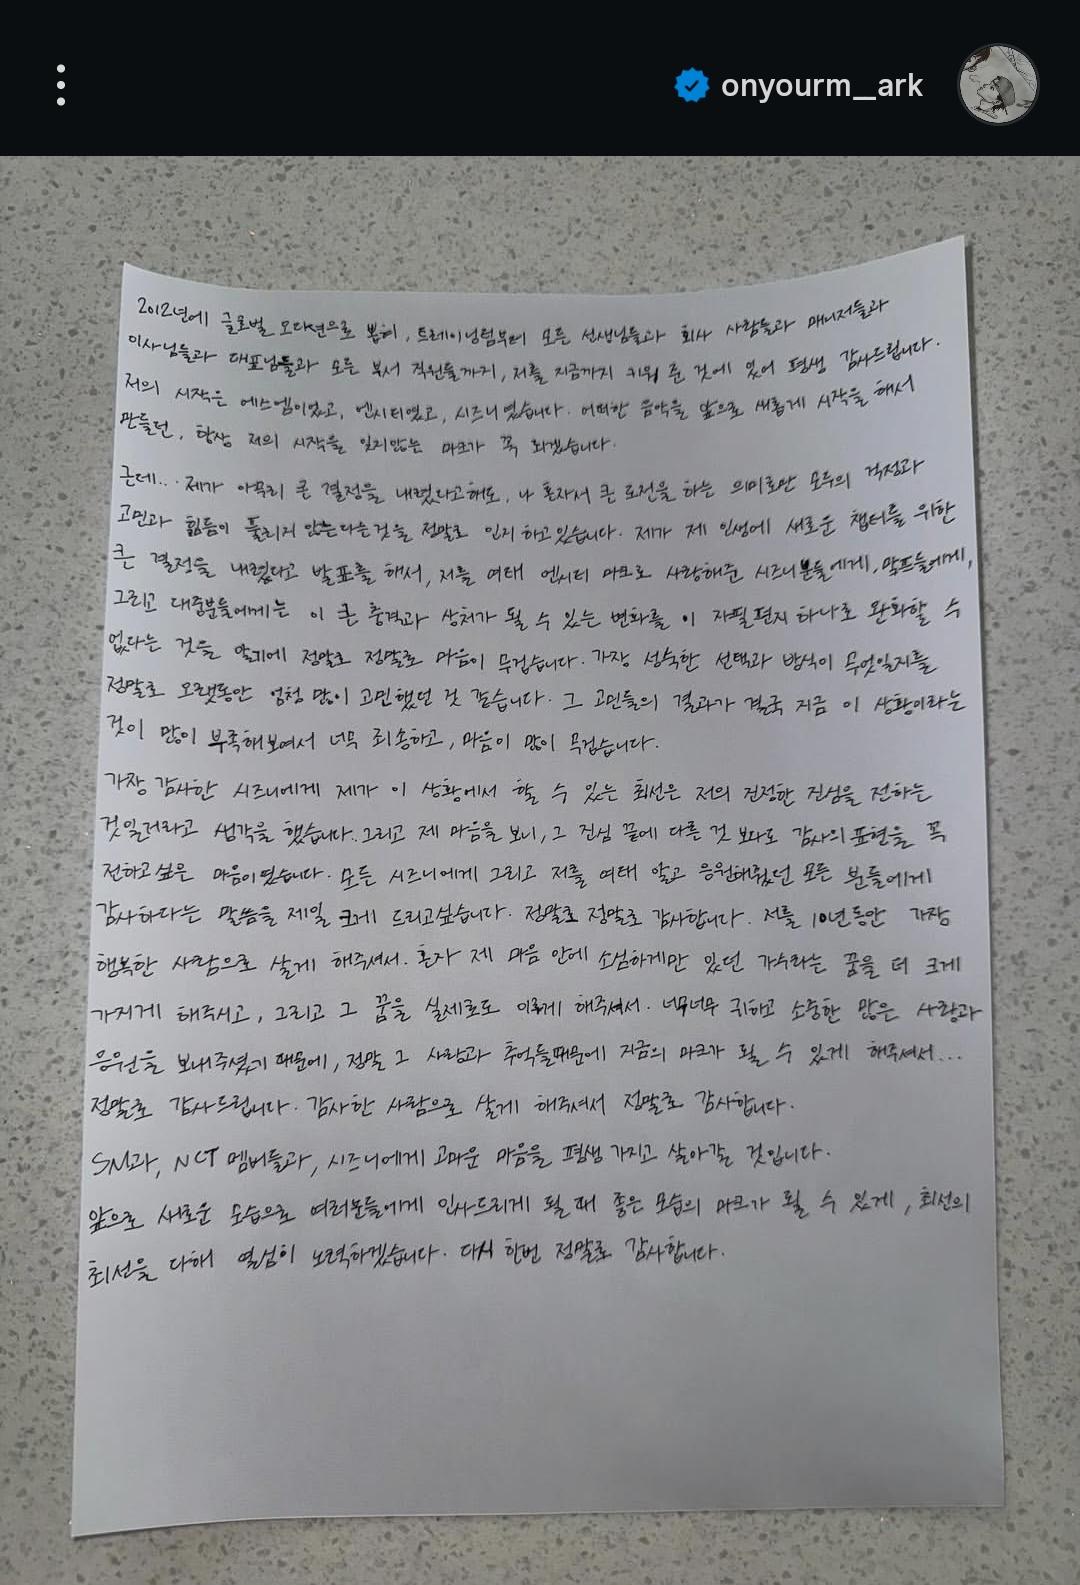 onyourm__ark
2012년에 글로벌 오디션으로 뽑혀, 트레이닝팀부터 모든 선생님들과 회사 사람들과 매니저들과
이사님들과 대표님들과 모든 부서 직원들까지, 저를 지금까지 키워 준 것에 있어 평생 감사드립니다.
저의 시작은 에스엠이었고, 엔시티였고, 시즈니였습니다. 어떠한 음악을 앞으로 새롭게 시작을 해서
만들던, 항상 저의 시작을 잊지않는 마크가 꼭 되겠습니다.
근데... 제가 아무리 큰 결정을 내렸다고해도, 나 혼자서 큰 도전을 하는 의미로만 모두의 걱정과
고민과 힘듦이 풀리지 않는다는것을 정말로 인지하고있습니다. 제가 제 인생에 새로운 챕터를 위한
큰 결정을 내렸다고 발표를 해서, 저를 여태 엔시티 마크로 사랑해준 시즈니분들에게, 맠프들에게,
그리고 대중분들에게는 이 큰 충격과 상처가 될 수 있는 변화를 이 자필편지 하나로 완화할 수
없다는 것을 알기에 정말로 정말로 마음이 무겁습니다. 가장 성숙한 선택과 방식이 무엇일지를
정말로 오랫동안 엄청 많이 고민했던 것 같습니다. 그 고민들의 결과가 결국 지금 이 상황이라는
것이 많이 부족해보여서 너무 죄송하고, 마음이 많이 무겁습니다.
가장 감사한 시즈니에게 제가 이 상황에서 할 수 있는 최선은 저의 진정한 진심을 전하는
것일거라고 생각을 했습니다. 그리고 제 마음을 보니, 그 진심 끝에 다른 것 보다도 감사의 표현을 꼭
전하고싶은 마음이였습니다. 모든 시즈니에게 그리고 저를 여태 알고 응원해줬던 모든 분들에게
감사하다는 말씀을 제일 크게 드리고싶습니다. 정말로 정말로 감사합니다. 저를 10년동안 가장
행복한 사람으로 살게 해주셔서. 혼자 제 마음 안에 소심하게만 있던 가수라는 꿈을 더 크게
가지게 해주시고, 그리고 그 꿈을 실제로도 이루게 해주셔서. 너무너무 귀하고 소중한 많은 사랑과
응원을 보내주셨기 때문에, 정말 그 사랑과 추억들때문에 지금의 마크가 될 수 있게 해주셔서...
정말로 감사드립니다. 감사한 사람으로 살게 해주셔서 정말로 감사합니다.
SM과, NCT 멤버들과, 시즈니에게 고마운 마음을 평생 가지고 살아갈 것입니다.
앞으로 새로운 모습으로 여러분들에게 인사드리게 될 때 좋은 모습의 마크가 될 수 있게, 최선의
최선을 다해 열심히 노력하겠습니다. 다시 한번 정말로 감사합니다.